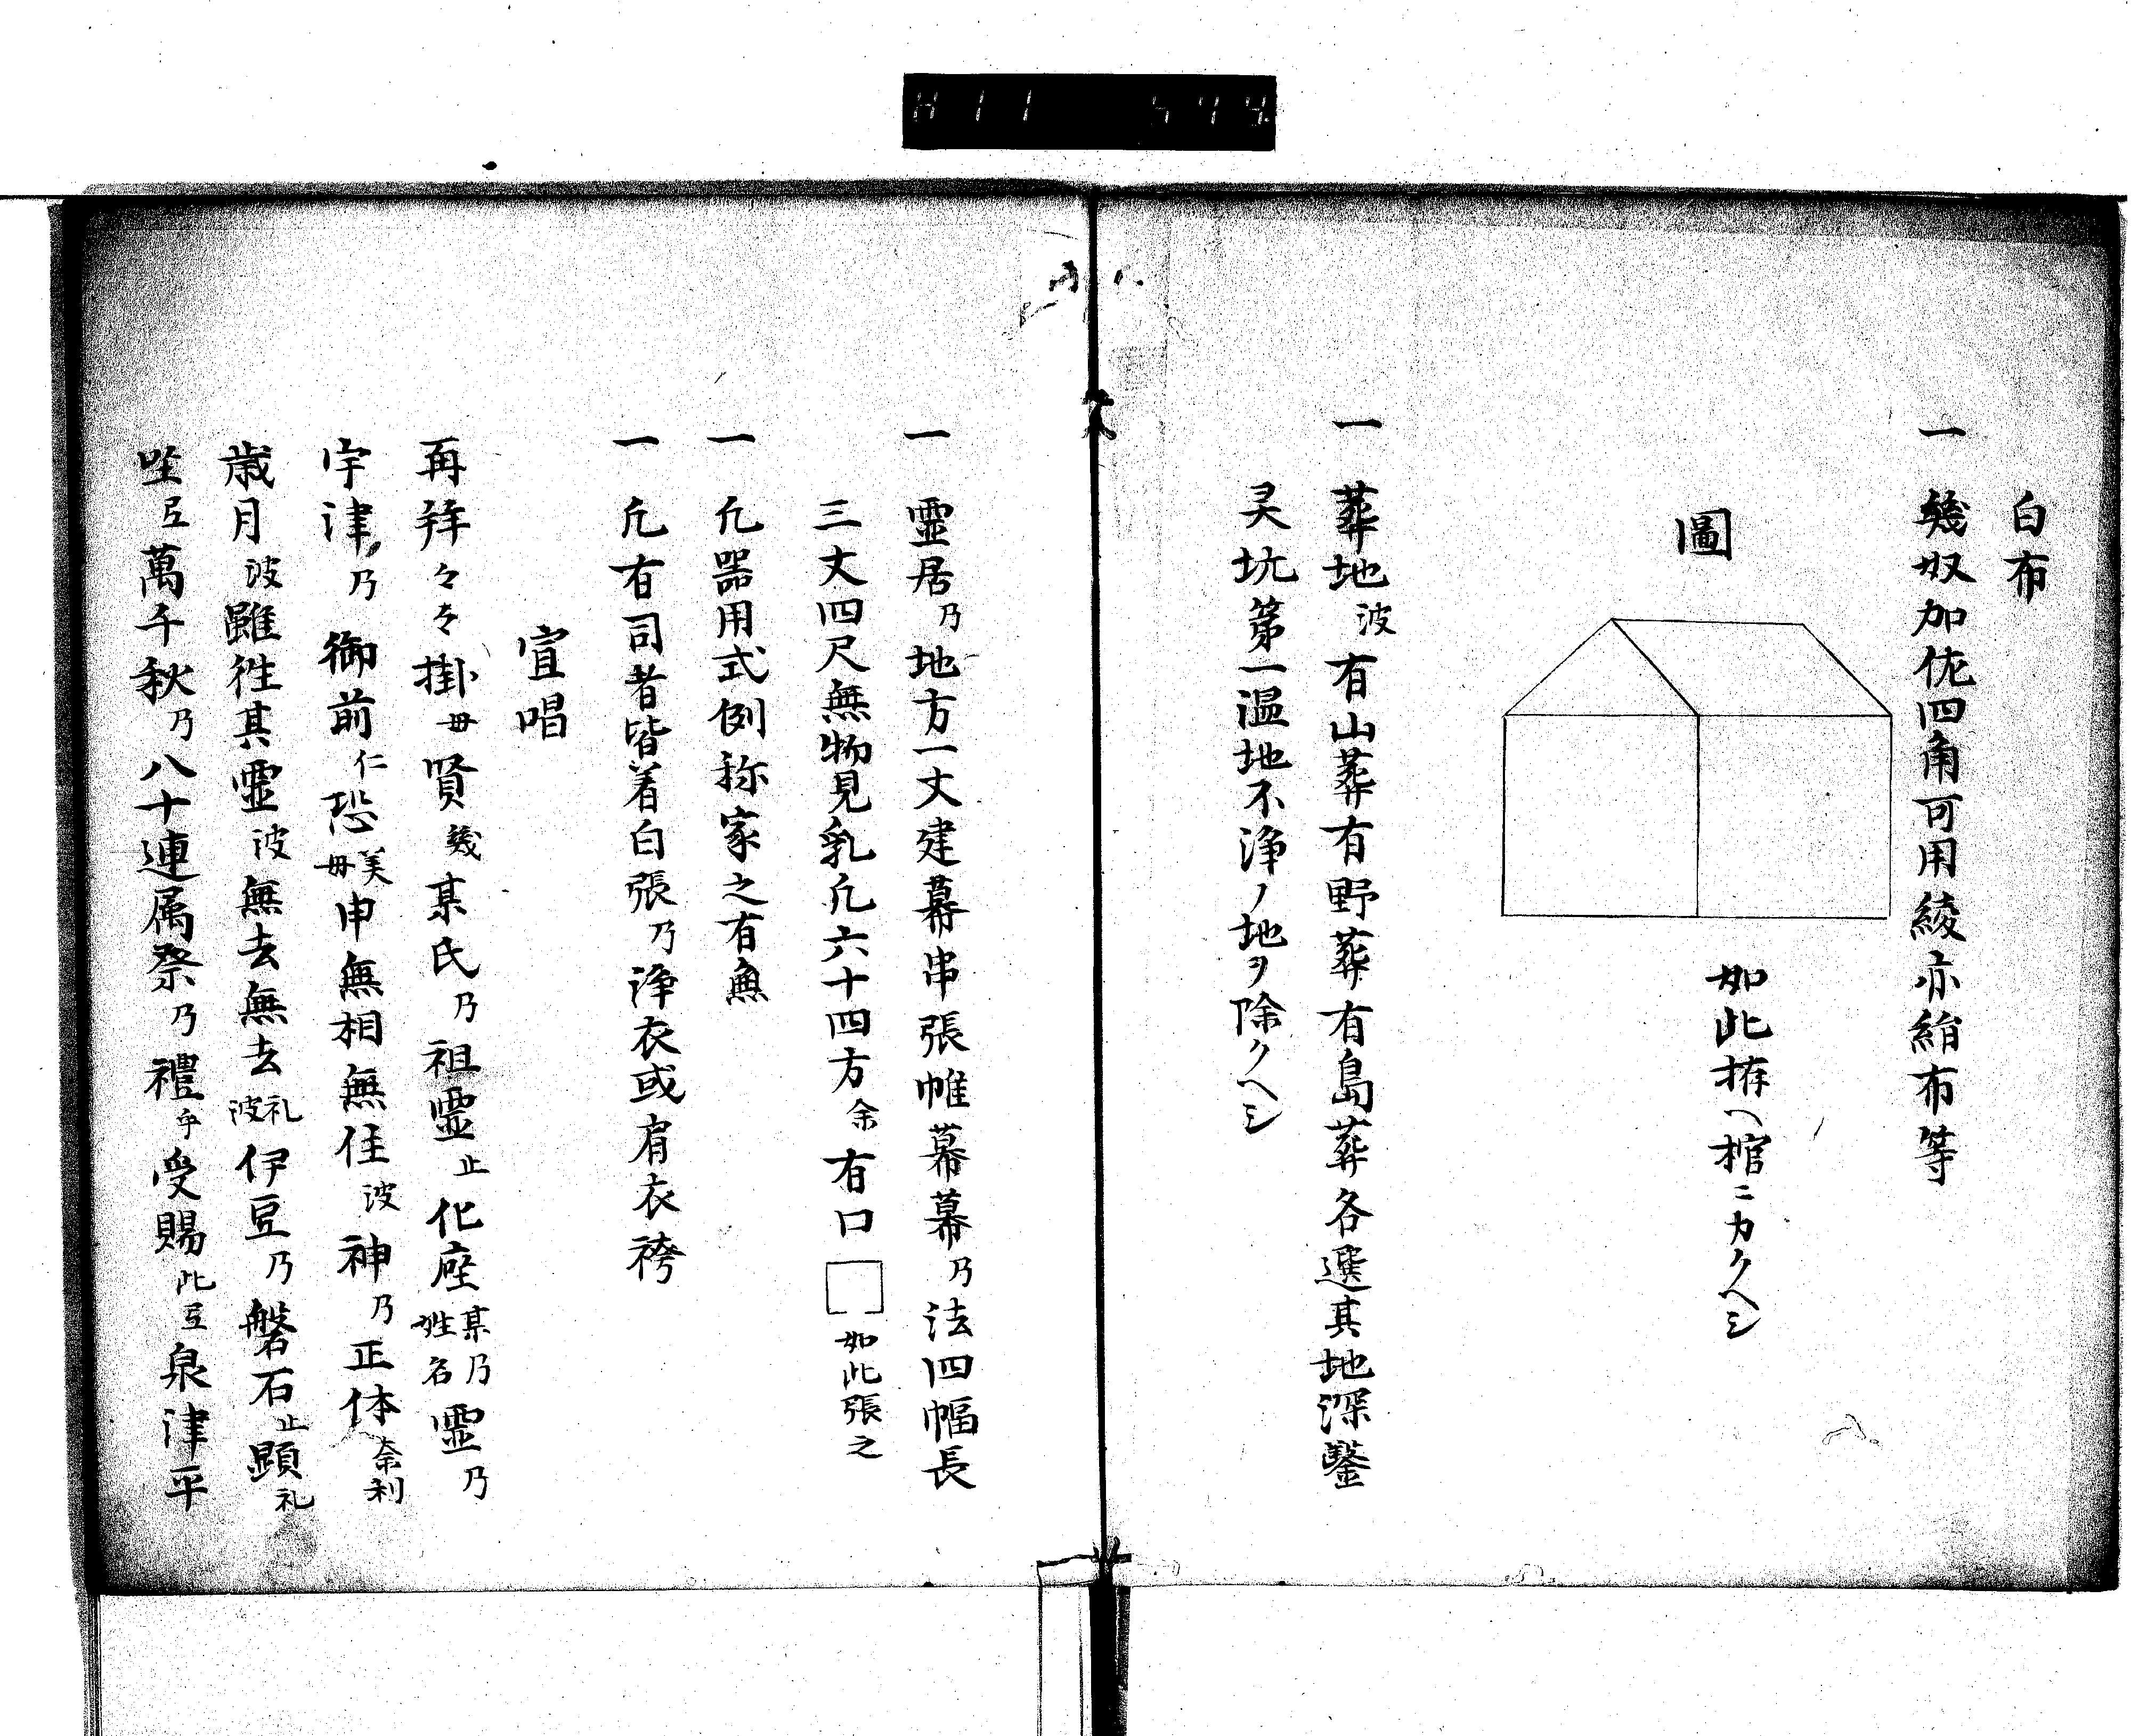 白布
一 幾奴加佐四角可用綾亦絹布等
圖
如此拵ヘ棺ニカクヘシ
一 葬地波有山葬有野葬有島葬各選其地深鑿
灵坑第一温地不浄ノ地ヲ除クヘシ
一 霊居乃地方一丈建幕串張帷幕幕乃法四幅長
三丈四尺無物見乳凢六十四方余有口 如此張之
一 凢噐用式例称家之有無
一 凢有司者皆着白張乃浄衣或肩衣袴
宣唱
再拜々々掛毋賢幾某氏乃祖霊止化座某乃姓名霊乃
宇津乃御前仁恐美毋申無相無住波神乃正体奈利
歳月波雖徃其霊波無去無去礼波伊豆乃磐石止顕礼
坐弖萬千秋乃八十連属祭乃禮乎受賜此豆泉津平
H11 574